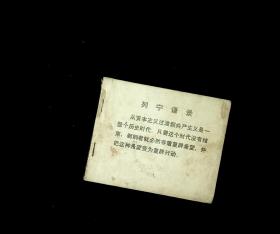 列宁语录
从资本主义过渡到共产主义是一
整个历史时代。只要这个时代没有结
束，剥削者就必然存着复辟希望，并
把这种希望变为复辟行动。